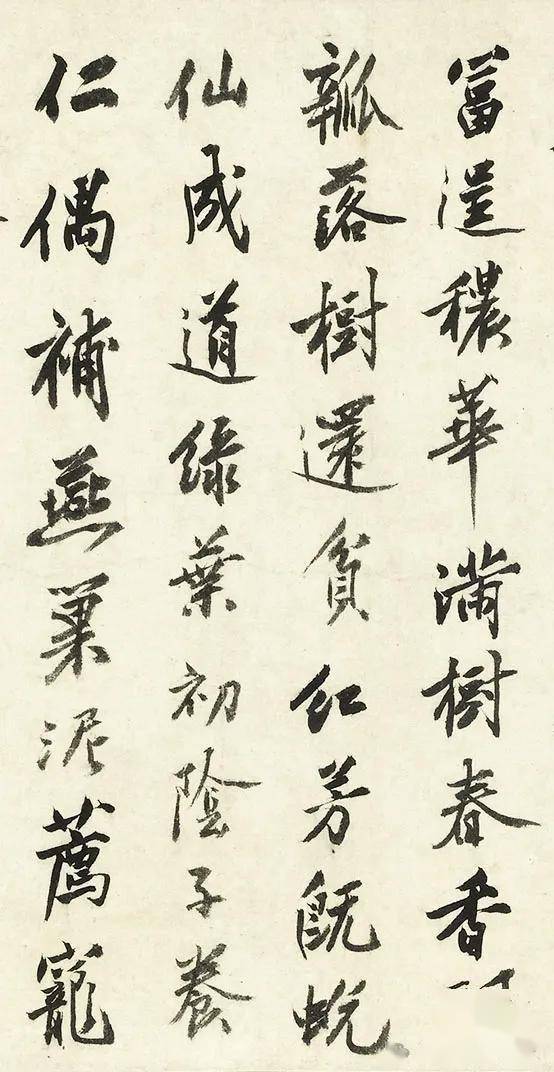 富逞穠華滿樹春香
瓣落樹還貧紅芳既蛻
仙成道綠葉初陰子養
仁偶補燕巢泥薦寵